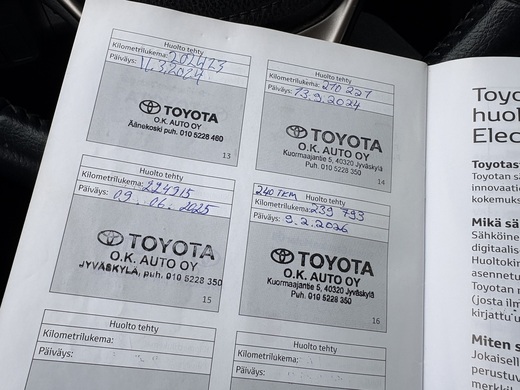 Huolto tehty
Kilometrilukema: 202423
Päiväys: 11.3.2024
TOYOTA
O.K. AUTO OY
Äänekoski puh. 010 5228 460
13
Huolto tehty
Kilometrilukema: 210 227
Päiväys: 13.9.2024
TOYOTA
O.K. AUTO OY
Kuormaajantie 5, 40320 Jyväskylä
Puh. 010 5228 350
14
Huolto tehty
Kilometrilukema: 224915
Päiväys: 09.06.2025
TOYOTA
O.K. AUTO OY
JYVÄSKYLÄ, puh. 010 5228 350
15
240 TKM
Huolto tehty
Kilometrilukema: 239 793
Päiväys: 9.2.2026
TOYOTA
O.K. AUTO OY
Kuormaajantie 5, 40320 Jyväskylä
Puh. 010 5228 350
16
Huolto tehty
Kilometrilukema:
Päiväys:
Huolto tehty
Kilometrilukema:
Päiväys:
Toyo
huol
Elec
Toyotas
Toyotan sä
innovaatio
kokemuks
Mikä sä
Sähköine
digitaalis
Huoltokir
asennetu
Toyotan r
(josta ilm
kirjattu u
Miten s
Jokaisell
perustuv
merkki